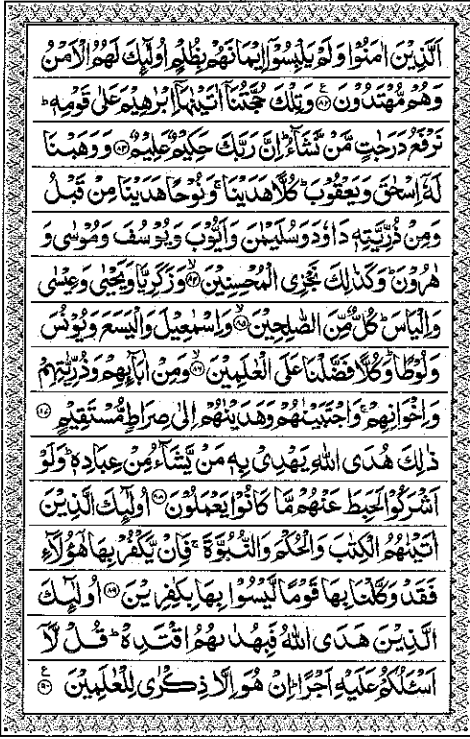 اَلَّذِيْنَ اٰمَنُوْا وَلَمْ يَلْبِسُوْٓا اِيْمَانَهُمْ بِظُلْمٍ اُولٰٓئِكَ لَهُمُ الْاَمْنُ
وَهُمْ مُّهْتَدُوْنَ ﴿۸۲﴾ وَتِلْكَ حُجَّتُنَاۤ اٰتَيْنٰهَاۤ اِبْرٰهِيْمَ عَلٰى قَوْمِهٖ ؕ
نَرْفَعُ دَرَجٰتٍ مَّنْ نَّشَآءُ ؕ اِنَّ رَبَّكَ حَكِيْمٌ عَلِيْمٌ ﴿۸۳﴾ وَوَهَبْنَا
لَهٗۤ اِسْحٰقَ وَيَعْقُوْبَ ؕ كُلًّا هَدَيْنَا ۚ وَنُوْحًا هَدَيْنَا مِنْ قَبْلُ
وَمِنْ ذُرِّيَّتِهٖ دَاوٗدَ وَسُلَيْمٰنَ وَاَيُّوْبَ وَيُوْسُفَ وَمُوْسٰى وَ
هٰرُوْنَ ؕ وَكَذٰلِكَ نَجْزِى الْمُحْسِنِيْنَ ﴿۸۴﴾ۙ وَزَكَرِيَّا وَيَحْيٰى وَعِيْسٰى
وَاِلْيَاسَ ؕ كُلٌّ مِّنَ الصّٰلِحِيْنَ ﴿۸۵﴾ۙ وَاِسْمٰعِيْلَ وَالْيَسَعَ وَيُوْنُسَ
وَلُوْطًا ؕ وَكُلًّا فَضَّلْنَا عَلَى الْعٰلَمِيْنَ ﴿۸۶﴾ۙ وَمِنْ اٰبَآئِهِمْ وَذُرِّيّٰتِهِمْ
وَاِخْوَانِهِمْ ۚ وَاجْتَبَيْنٰهُمْ وَهَدَيْنٰهُمْ اِلٰى صِرَاطٍ مُّسْتَقِيْمٍ ﴿۸۷﴾
ذٰلِكَ هُدَى اللّٰهِ يَهْدِىْ بِهٖ مَنْ يَّشَآءُ مِنْ عِبَادِهٖ ؕ وَلَوْ
اَشْرَكُوْا لَحَبِطَ عَنْهُمْ مَّا كَانُوْا يَعْمَلُوْنَ ﴿۸۸﴾ اُولٰٓئِكَ الَّذِيْنَ
اٰتَيْنٰهُمُ الْكِتٰبَ وَالْحُكْمَ وَالنُّبُوَّةَ ۚ فَاِنْ يَّكْفُرْ بِهَا هٰٓؤُلَآءِ
فَقَدْ وَكَّلْنَا بِهَا قَوْمًا لَّيْسُوْا بِهَا بِكٰفِرِيْنَ ﴿۸۹﴾ اُولٰٓئِكَ
الَّذِيْنَ هَدَى اللّٰهُ فَبِهُدٰىهُمُ اقْتَدِهْ ؕ قُلْ لَّاۤ
اَسْـَٔلُكُمْ عَلَيْهِ اَجْرًا ؕ اِنْ هُوَ اِلَّا ذِكْرٰى لِلْعٰلَمِيْنَ ﴿۹۰﴾ ع